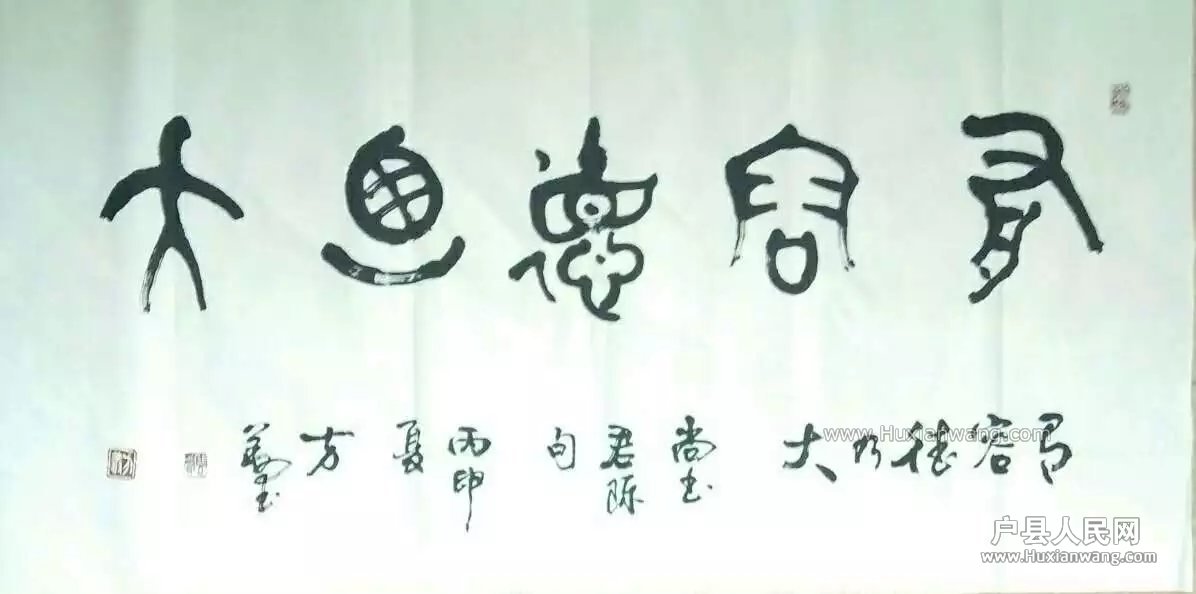 有容德乃大
有容德乃大 尚书 君陈 句 丙申 夏 方
www.Huxianwang.com
户县人民网
www.Huxianwang.com